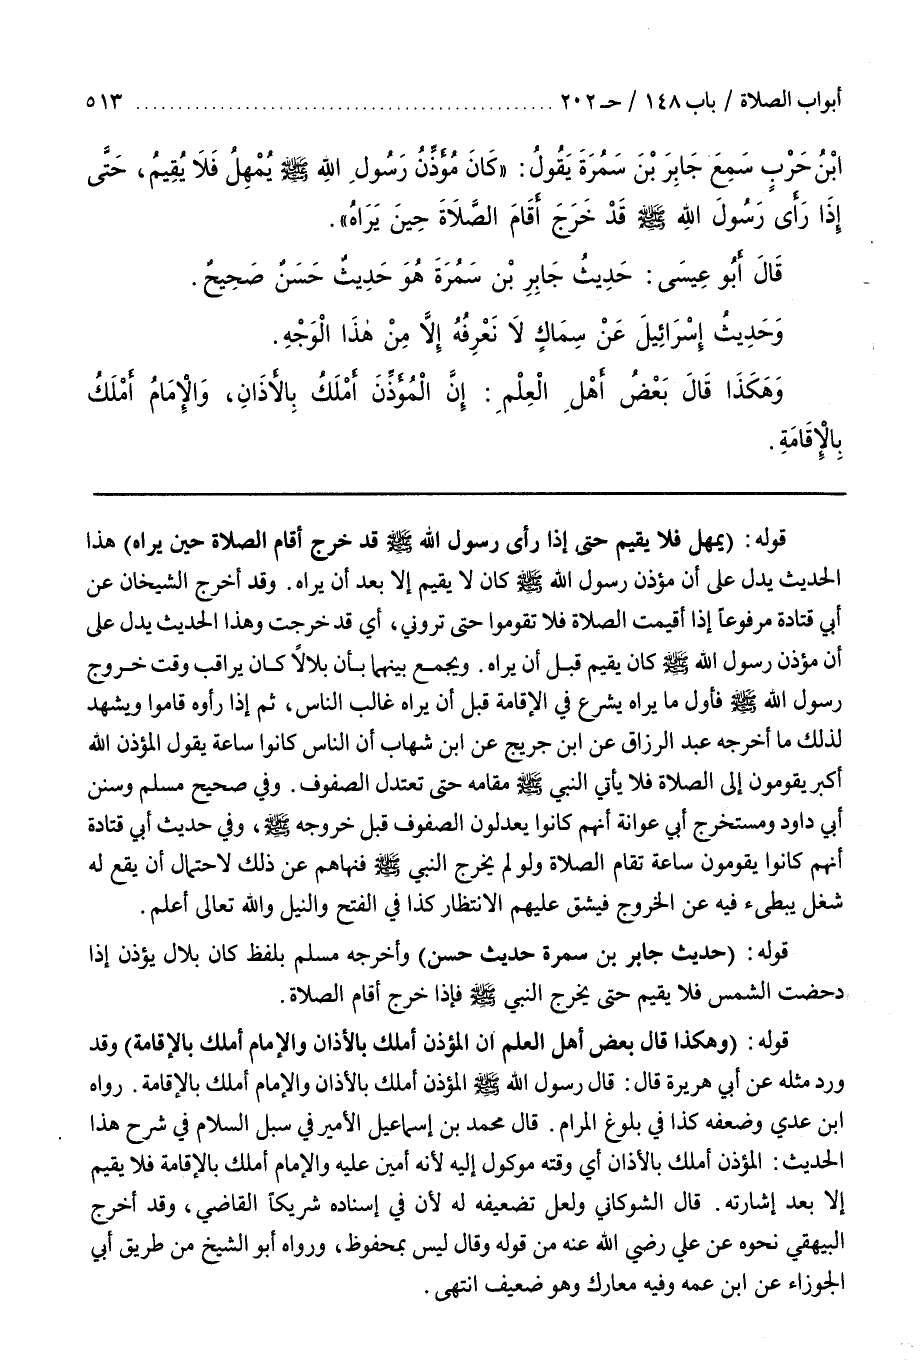 أبواب الصلاة / باب ١٤٨ / حـ ٢٠٢ ........................................................ ٥١٣
ابْنُ حَرْبٍ سَمِعَ جَابِرَ بْنَ سَمُرَةَ يَقُولُ: «كَانَ مُؤَذِّنُ رَسُولِ اللهِ ﷺ يُمْهِلُ فَلَا يُقِيمُ، حَتَّى
إِذَا رَأَى رَسُولَ اللهِ ﷺ قَدْ خَرَجَ أَقَامَ الصَّلَاةَ حِينَ يَرَاهُ».
قَالَ أَبُو عِيسَى: حَدِيثُ جَابِرِ بْنِ سَمُرَةَ هُوَ حَدِيثٌ حَسَنٌ صَحِيحٌ.
وَحَدِيثُ إِسْرَائِيلَ عَنْ سِمَاكٍ لَا نَعْرِفُهُ إِلَّا مِنْ هٰذَا الْوَجْهِ.
وَهَكَذَا قَالَ بَعْضُ أَهْلِ الْعِلْمِ: إِنَّ الْمُؤَذِّنَ أَمْلَكُ بِالْأَذَانِ، وَالْإِمَامُ أَمْلَكُ
بِالْإِقَامَةِ.
قوله: (يمهل فلا يقيم حتى إذا رأى رسول الله ﷺ قد خرج أقام الصلاة حين يراه) هذا
الحديث يدل على أن مؤذن رسول الله ﷺ كان لا يقيم إلا بعد أن يراه. وقد أخرج الشيخان عن
أبي قتادة مرفوعاً إذا أقيمت الصلاة فلا تقوموا حتى تروني، أي قد خرجت وهذا الحديث يدل على
أن مؤذن رسول الله ﷺ كان يقيم قبل أن يراه. ويجمع بينهما بأن بلالاً كان يراقب وقت خروج
رسول الله ﷺ فأول ما يراه يشرع في الإقامة قبل أن يراه غالب الناس، ثم إذا رأوه قاموا ويشهد
لذلك ما أخرجه عبد الرزاق عن ابن جريج عن ابن شهاب أن الناس كانوا ساعة يقول المؤذن الله
أكبر يقومون إلى الصلاة فلا يأتي النبي ﷺ مقامه حتى تعتدل الصفوف. وفي صحيح مسلم وسنن
أبي داود ومستخرج أبي عوانة أنهم كانوا يعدلون الصفوف قبل خروجه ﷺ، وفي حديث أبي قتادة
أنهم كانوا يقومون ساعة تقام الصلاة ولو لم يخرج النبي ﷺ فنهاهم عن ذلك لاحتمال أن يقع له
شغل يبطىء فيه عن الخروج فيشق عليهم الانتظار كذا في الفتح والنيل والله تعالى أعلم.
قوله: (حديث جابر بن سمرة حديث حسن) وأخرجه مسلم بلفظ كان بلال يؤذن إذا
دحضت الشمس فلا يقيم حتى يخرج النبي ﷺ فإذا خرج أقام الصلاة.
قوله: (وهكذا قال بعض أهل العلم ان المؤذن أملك بالأذان والإمام أملك بالإقامة) وقد
ورد مثله عن أبي هريرة قال: قال رسول الله ﷺ المؤذن أملك بالأذان والإمام أملك بالإقامة. رواه
ابن عدي وضعفه كذا في بلوغ المرام. قال محمد بن إسماعيل الأمير في سبل السلام في شرح هذا
الحديث: المؤذن أملك بالأذان أي وقته موكول إليه لأنه أمين عليه والإمام أملك بالإقامة فلا يقيم
إلا بعد إشارته. قال الشوكاني ولعل تضعيفه له لأن في إسناده شريكاً القاضي، وقد أخرج
البيهقي نحوه عن علي رضي الله عنه من قوله وقال ليس بمحفوظ، ورواه أبو الشيخ من طريق أبي
الجوزاء عن ابن عمه وفيه معارك وهو ضعيف انتهى.